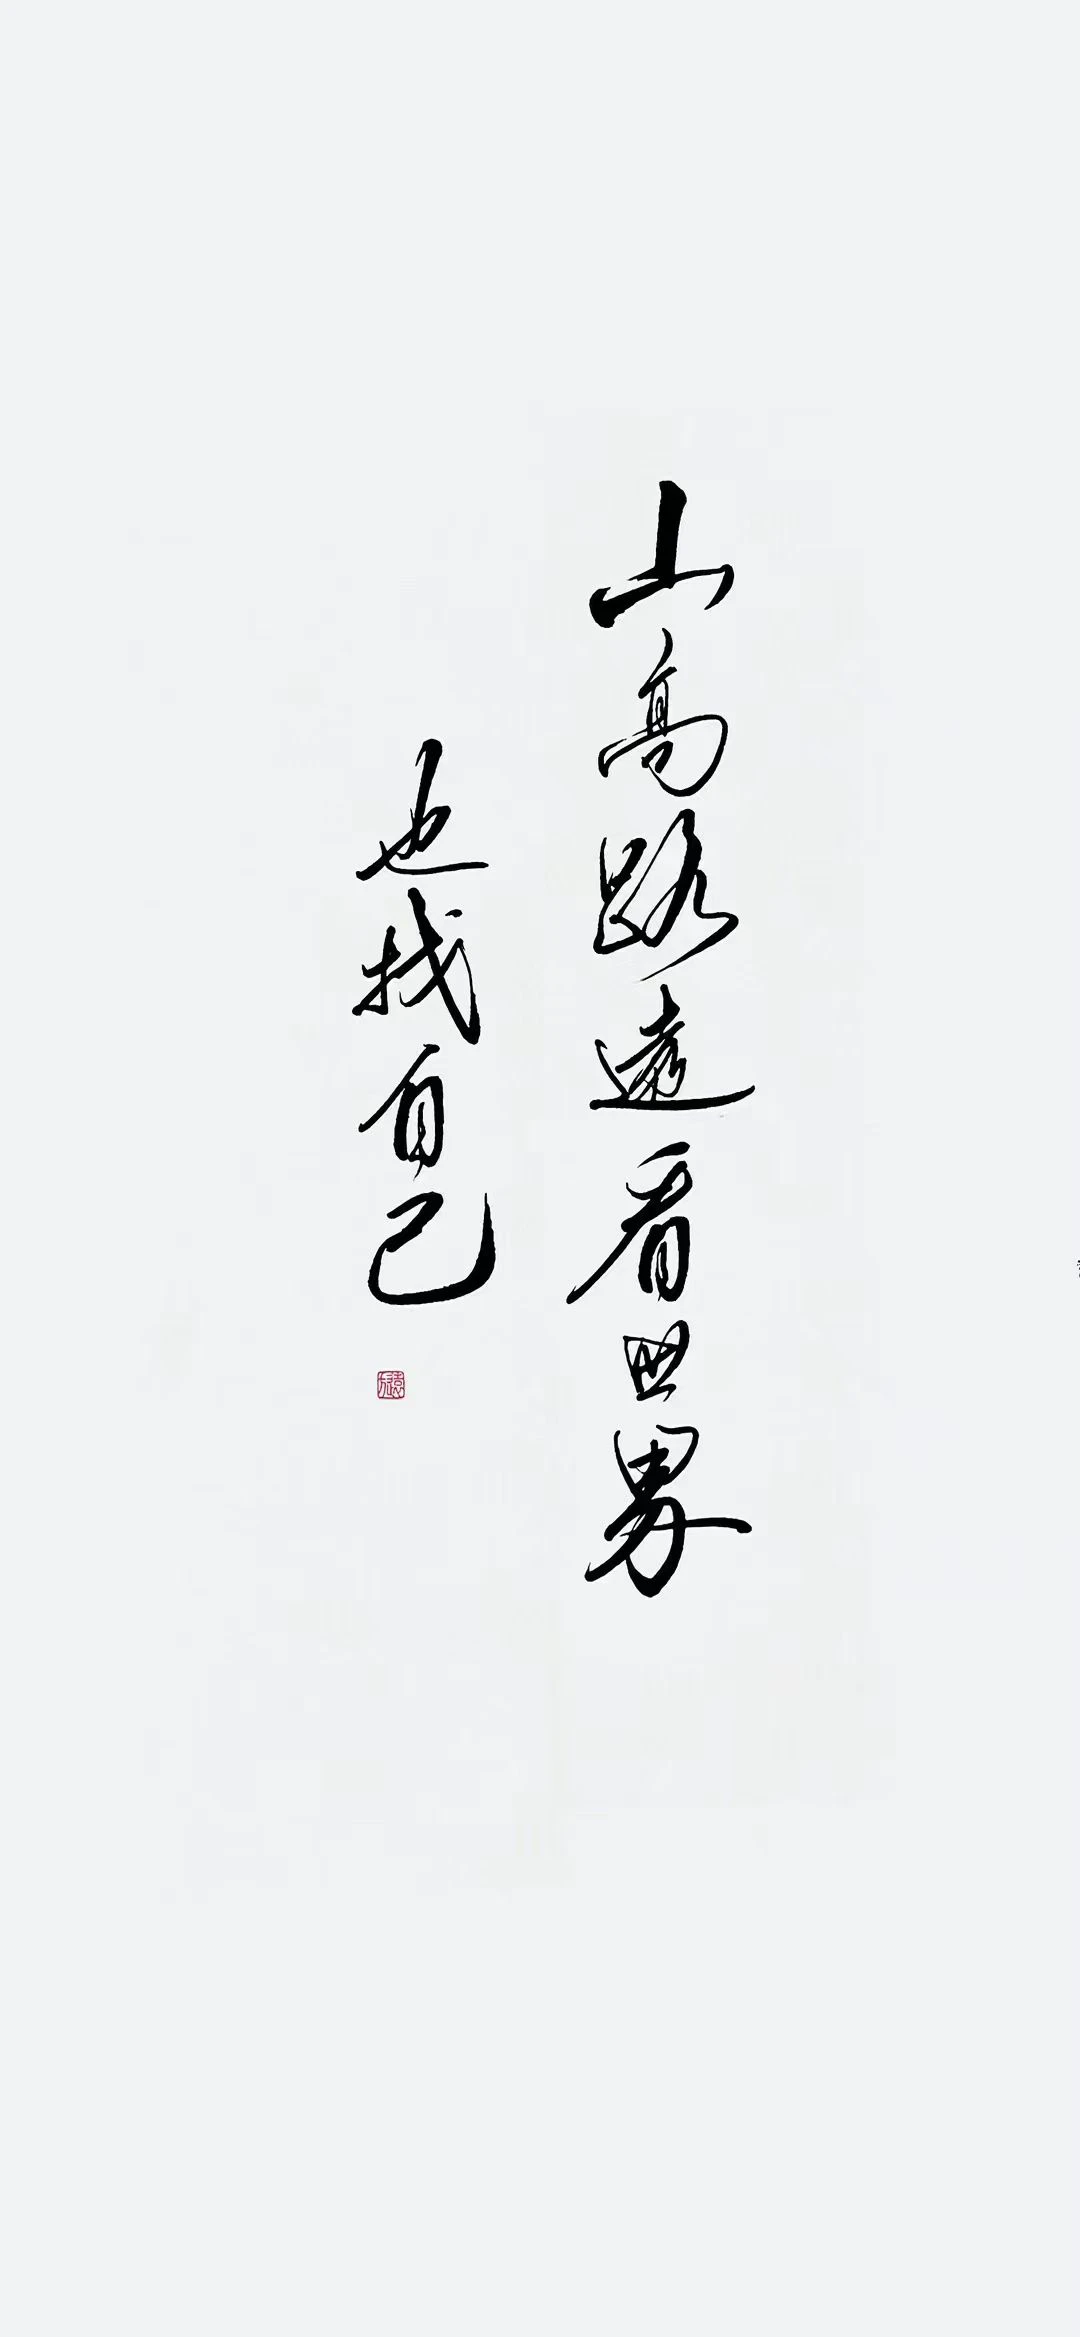 山高路遠看世界
也找自己